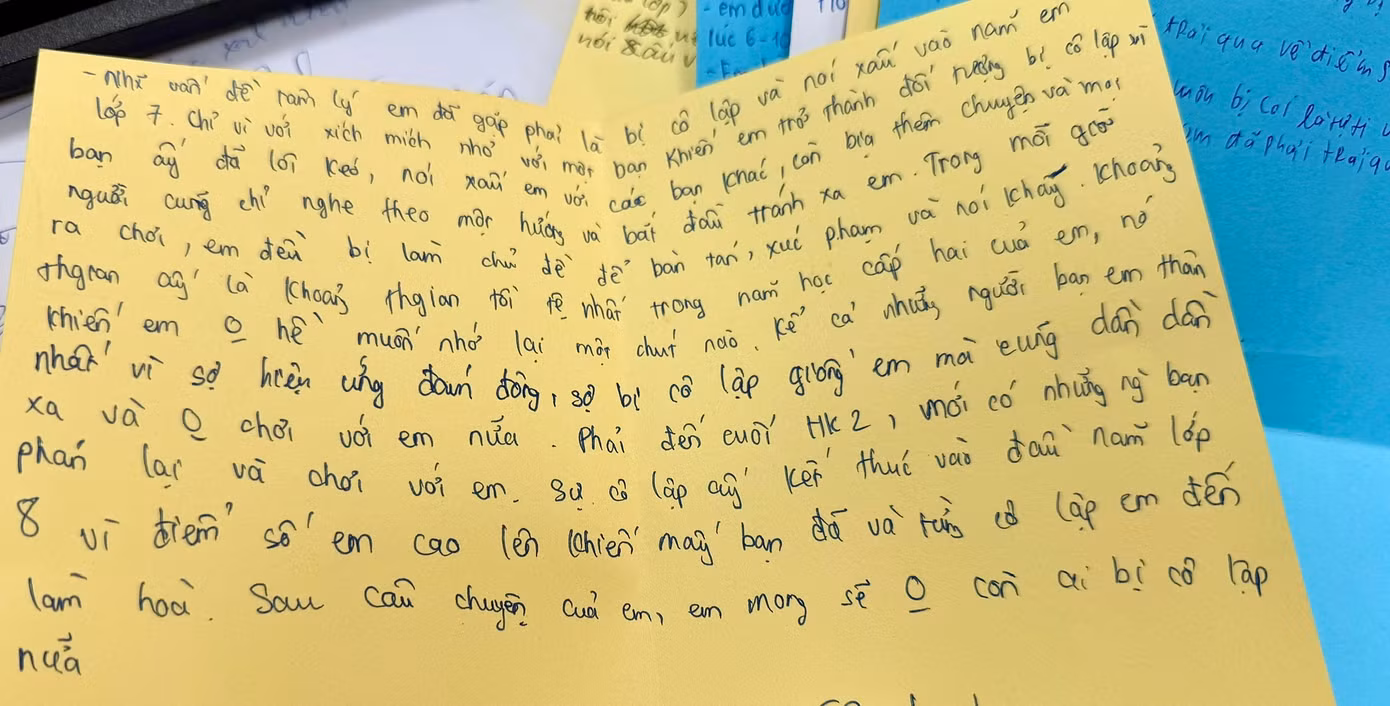 - Những vấn đề tâm lý em đã gặp phải là bị cô lập và nói xấu vào năm em
lớp 7. Chỉ vì với xích mích nhỏ với một bạn khiến em trở thành đối tượng bị cô lập vì
bạn ấy đã lôi kéo, nói xấu em với các bạn khác, còn bịa thêm chuyện và mọi
người cũng chỉ nghe theo một hướng và bắt đầu tránh xa em. Trong mỗi giờ
ra chơi, em đều bị làm chủ đề để bàn tán, xúc phạm và nói kháy. Khoảng
thgian ấy là khoảng thgian tồi tệ nhất trong năm học cấp hai của em, nó
khiến em O hề muốn nhớ lại một chút nào. Kể cả những người bạn em thân
nhất vì sợ hiệu ứng đám đông, sợ bị cô lập giống em mà cũng dần dần
xa và O chơi với em nữa. Phải đến cuối HK2, mới có những ng bạn
phản lại và chơi với em. Sự cô lập ấy kết thúc vào đầu năm lớp
8 vì điểm số em cao lên khiến mấy bạn đã và từng cô lập em đến
làm hoà. Sau câu chuyện của em, em mong sẽ O còn ai bị cô lập
nữa
- em
lúc 6-10
trải qua về điểm s